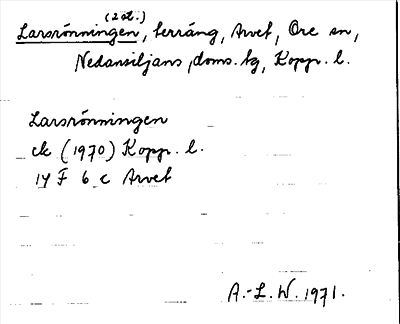 (2 st.)
Larsrönningen, terräng, Arvet, Ore sn,
Nedansiljans, doms. tg, Kopp. l.
Larsrönningen
ek (1970) Kopp. l.
14 F 6 c Arvet
A.-L. W. 1971.